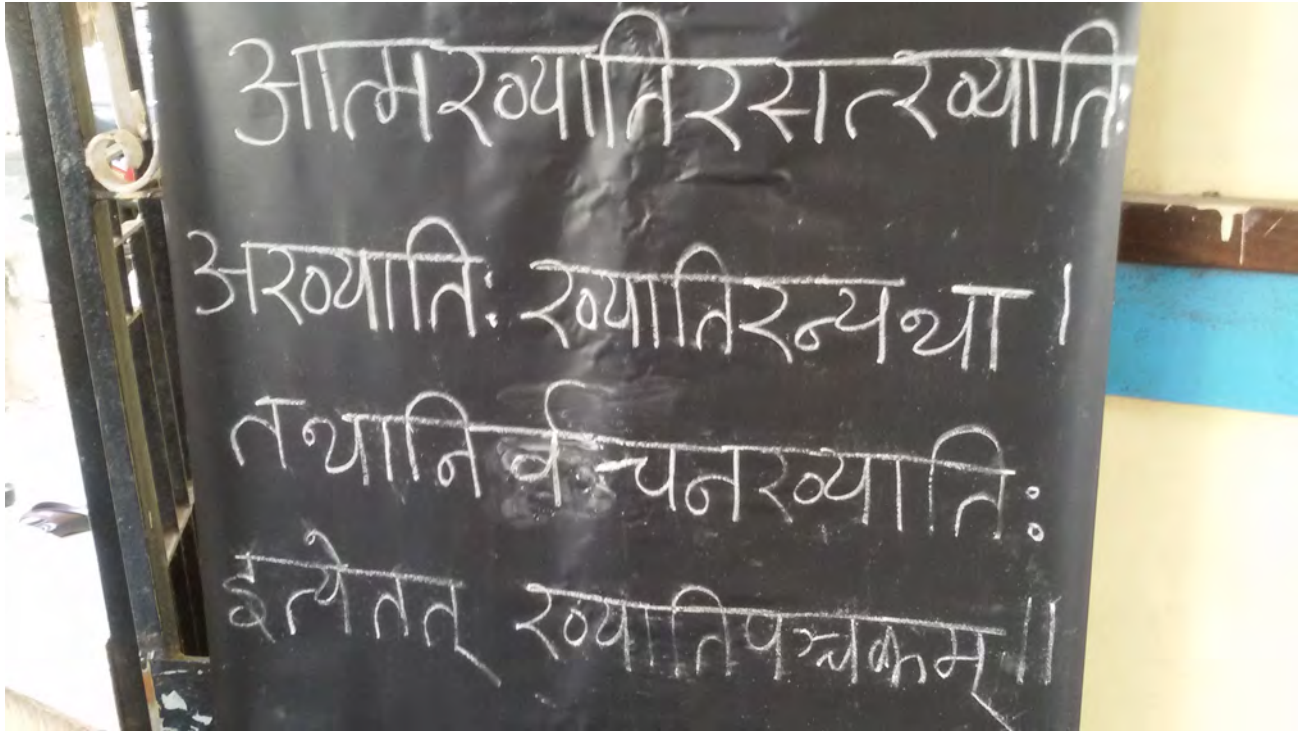 आत्मख्यातिरसत्ख्यातिः
अख्यातिः ख्यातिरन्यथा ।
तथानिर्वचनख्यातिः
इत्येतत् ख्यातिपञ्चकम् ॥